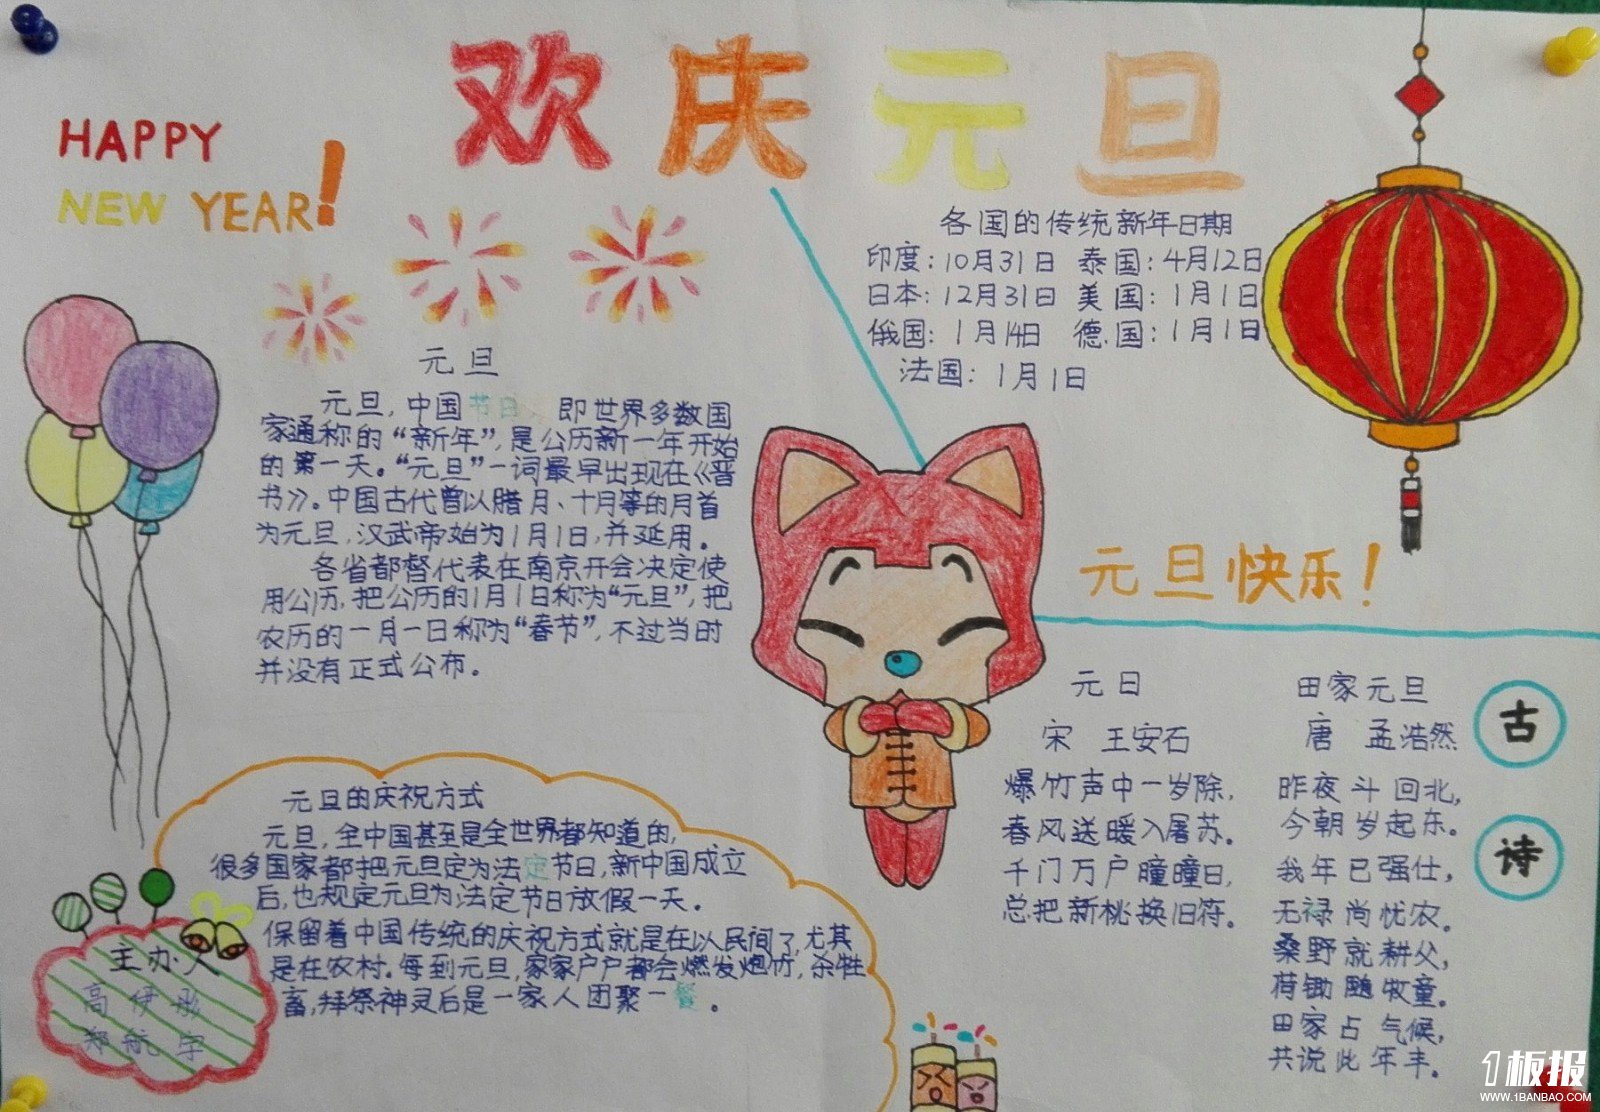 欢庆元旦
HAPPY
NEW YEAR!
各国的传统新年日期
印度：10月31日 泰国：4月12日
日本：12月31日 美国：1月1日
俄国：1月14日 德国：1月1日
法国：1月1日
元旦
元旦，中国节日 即世界多数国
家通称的“新年”，是公历新一年开始
的第一天。“元旦”一词最早出现在《晋
书》。中国古代曾以腊月、十月等的月首
为元旦，汉武帝始为1月1日，并延用。
各省都督代表在南京开会决定使
用公历，把公历的1月1日称为“元旦”，把
农历的一月一日称为“春节”，不过当时
并没有正式公布。
元旦快乐！
古诗
元日
宋 王安石
爆竹声中一岁除，
春风送暖入屠苏。
千门万户瞳瞳日，
总把新桃换旧符。
田家元旦
唐 孟浩然
昨夜斗回北，
今朝岁起东。
我年已强仕，
无禄尚忧农。
桑野就耕父，
荷锄随牧童。
田家占气候，
共说此年丰。
元旦的庆祝方式
元旦，全中国甚至是全世界都知道的，
很多国家都把元旦定为法定节日，新中国成立
后，也规定元旦为法定节日放假一天。
保留着中国传统的庆祝方式就是在以民间了，尤其
是在农村。每到元旦，家家户户都会燃发炮竹，杀牲
畜，拜祭神灵后是一家人团聚一餐。
主办人
高伊
郑航宇
1板报
WWW.1BANBAO.COM